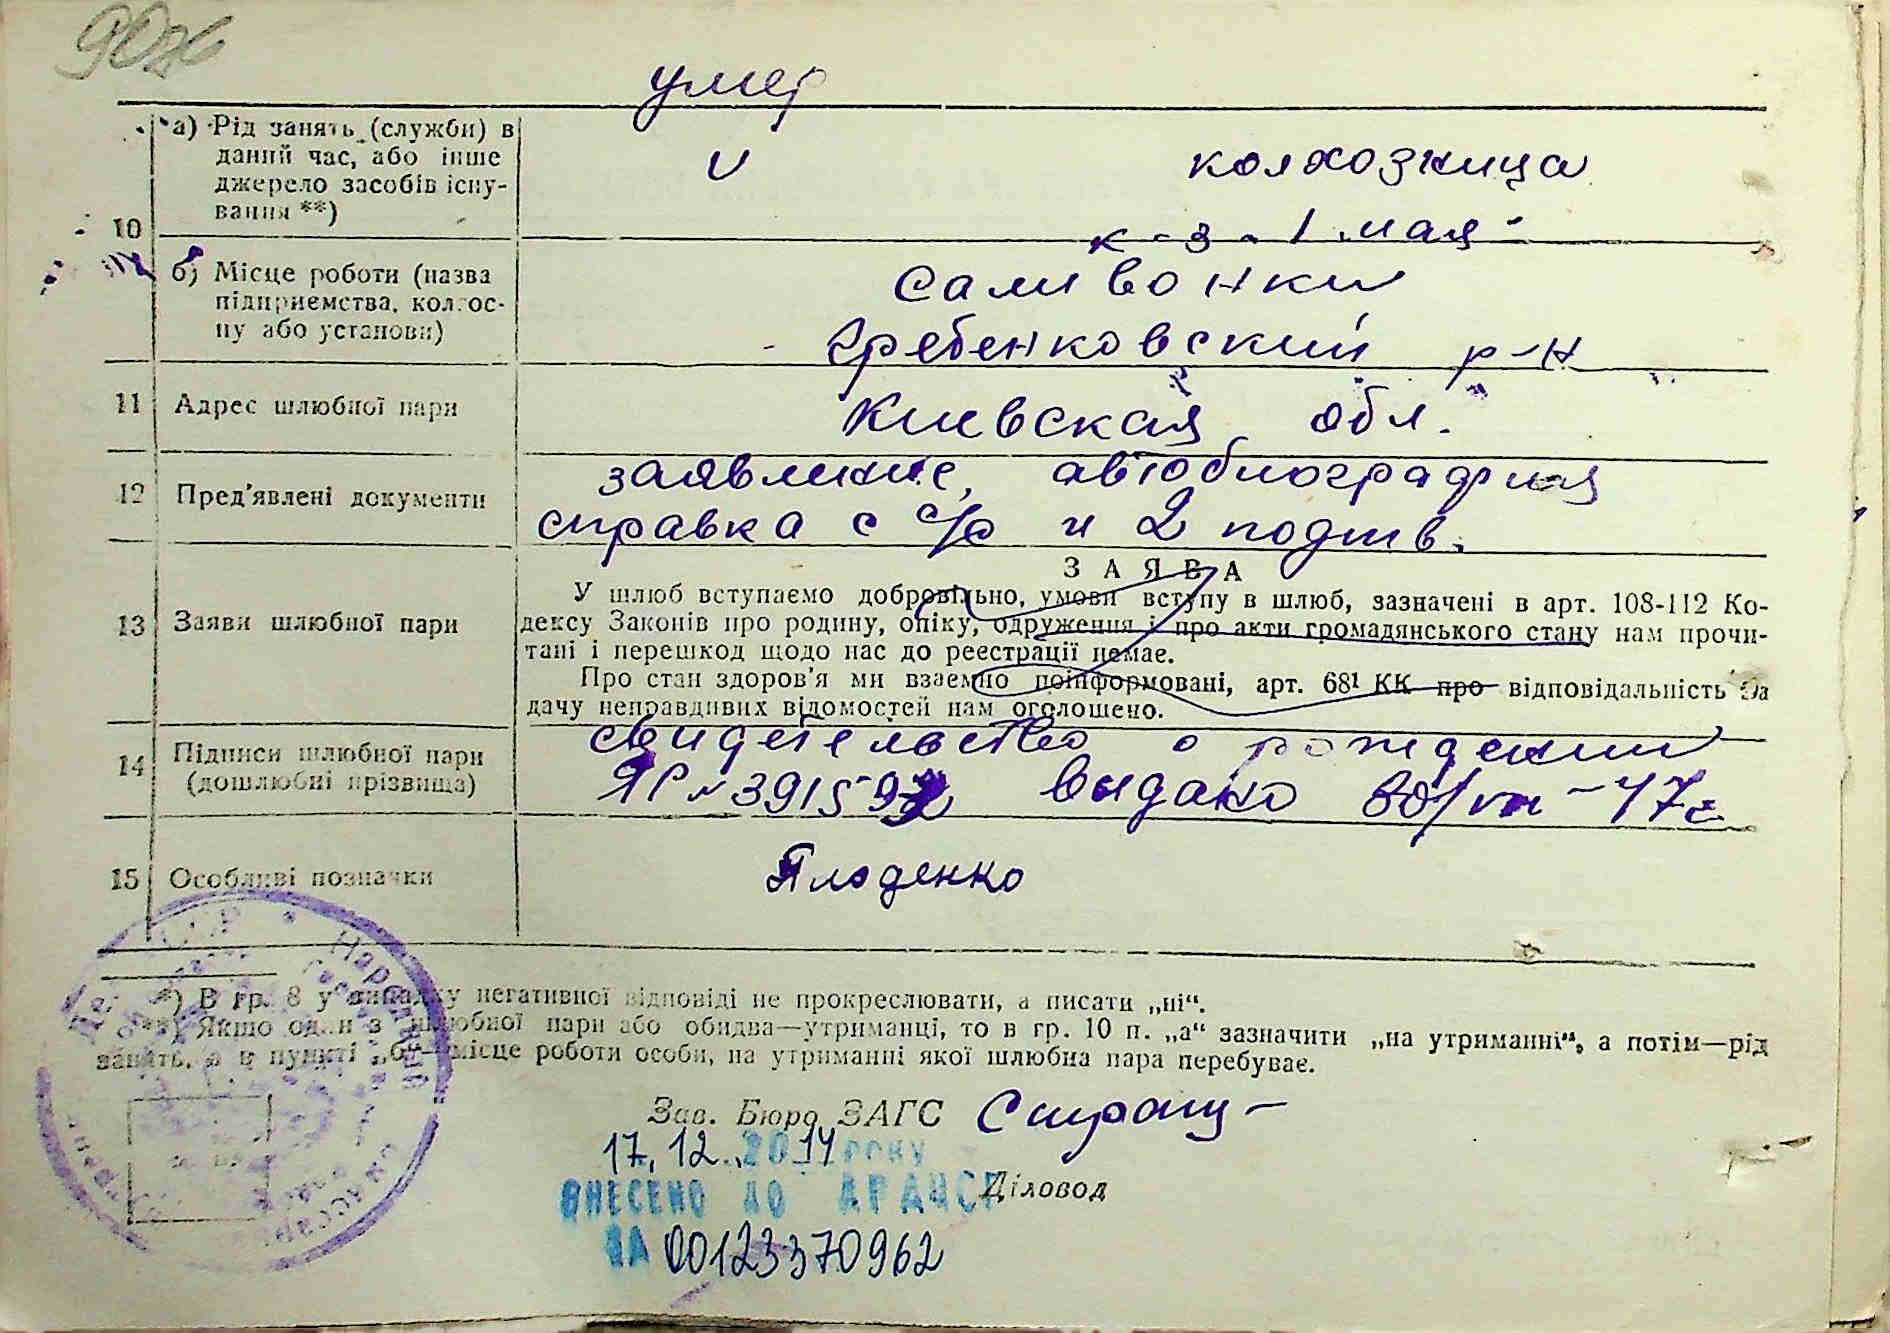 умер
а) Рід занять (служби) в
даний час, або інше
джерело засобів існу-
вання **)
колхозница
10
к-з 1 мая
б) Місце роботи (назва
підприємства, колгос-
пу або установи)
Саливонки
Гребенковский р-н
11 Адрес шлюбної пари
Киевская обл.
12 Пред'явлені документи
заявление, автобиография
справка с с/с и 2 подтв.
ЗАЯВА
13 Заяви шлюбної пари
У шлюб вступаємо добровільно, умови вступу в шлюб, зазначені в арт. 108-112 Ко-
дексу Законів про родину, опіку, одруження і про акти громадянського стану нам прочи-
тані і перешкод щодо нас до реєстрації немає.
Про стан здоров'я ми взаємно поінформовані, арт. 68¹ КК про відповідальність за
дачу неправдивих відомостей нам оголошено.
14 Підписи шлюбної пари
(дошлюбні прізвища)
свидетельство о рождении
ЯР № 391592 выдано 30/VIII-47г
15 Особливі позначки
Плоденко
*) В гр. 8 у випадку негативної відповіді не прокреслювати, а писати „ні“.
**) Якщо один з шлюбної пари або обидва—утриманці, то в гр. 10 п. „а“ зазначити „на утриманні“, а потім—рід
занять, а в пункті „б“—місце роботи особи, на утриманні якої шлюбна пара перебуває.
Зав. Бюро ЗАГС
17.12.2014 року
ВНЕСЕНО ДО ДРАЦСГ
Діловод
ЗА 00123370962